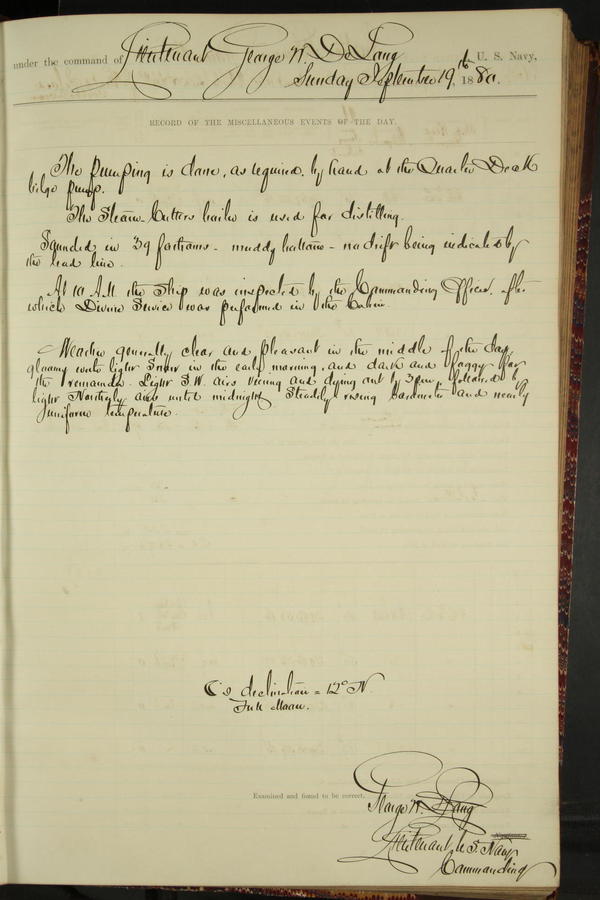 under the command of Lieutenant George W. De Long U. S. Navy,
Sunday September 19th, 1880.
RECORD OF THE MISCELLANEOUS EVENTS OF THE DAY.
The pumping is done, as required, by hand at the Quarter Deck
bilge pump.
The Steam-Cutters boiler is used for distilling.
Sounded in 39 fathoms - muddy bottom - no drift being indicated by
the lead line.
At 10 A.M. the ship was inspected by the Commanding Officer, after
which Divine Service was performed in the Cabin.
Weather generally clear and pleasant in the middle of the day,
gloomy with light Snow in the early morning, and dark and foggy for
the remainder. Light S.W. airs veering and dying out by 3 p.m. followed by
light Northerly airs until midnight. Steadily rising barometer and nearly
uniform temperature.
☾'s declination = 12° N.
Full Moon.
Examined and found to be correct,
George W. De Long
Lieutenant U. S. Navy
Commanding